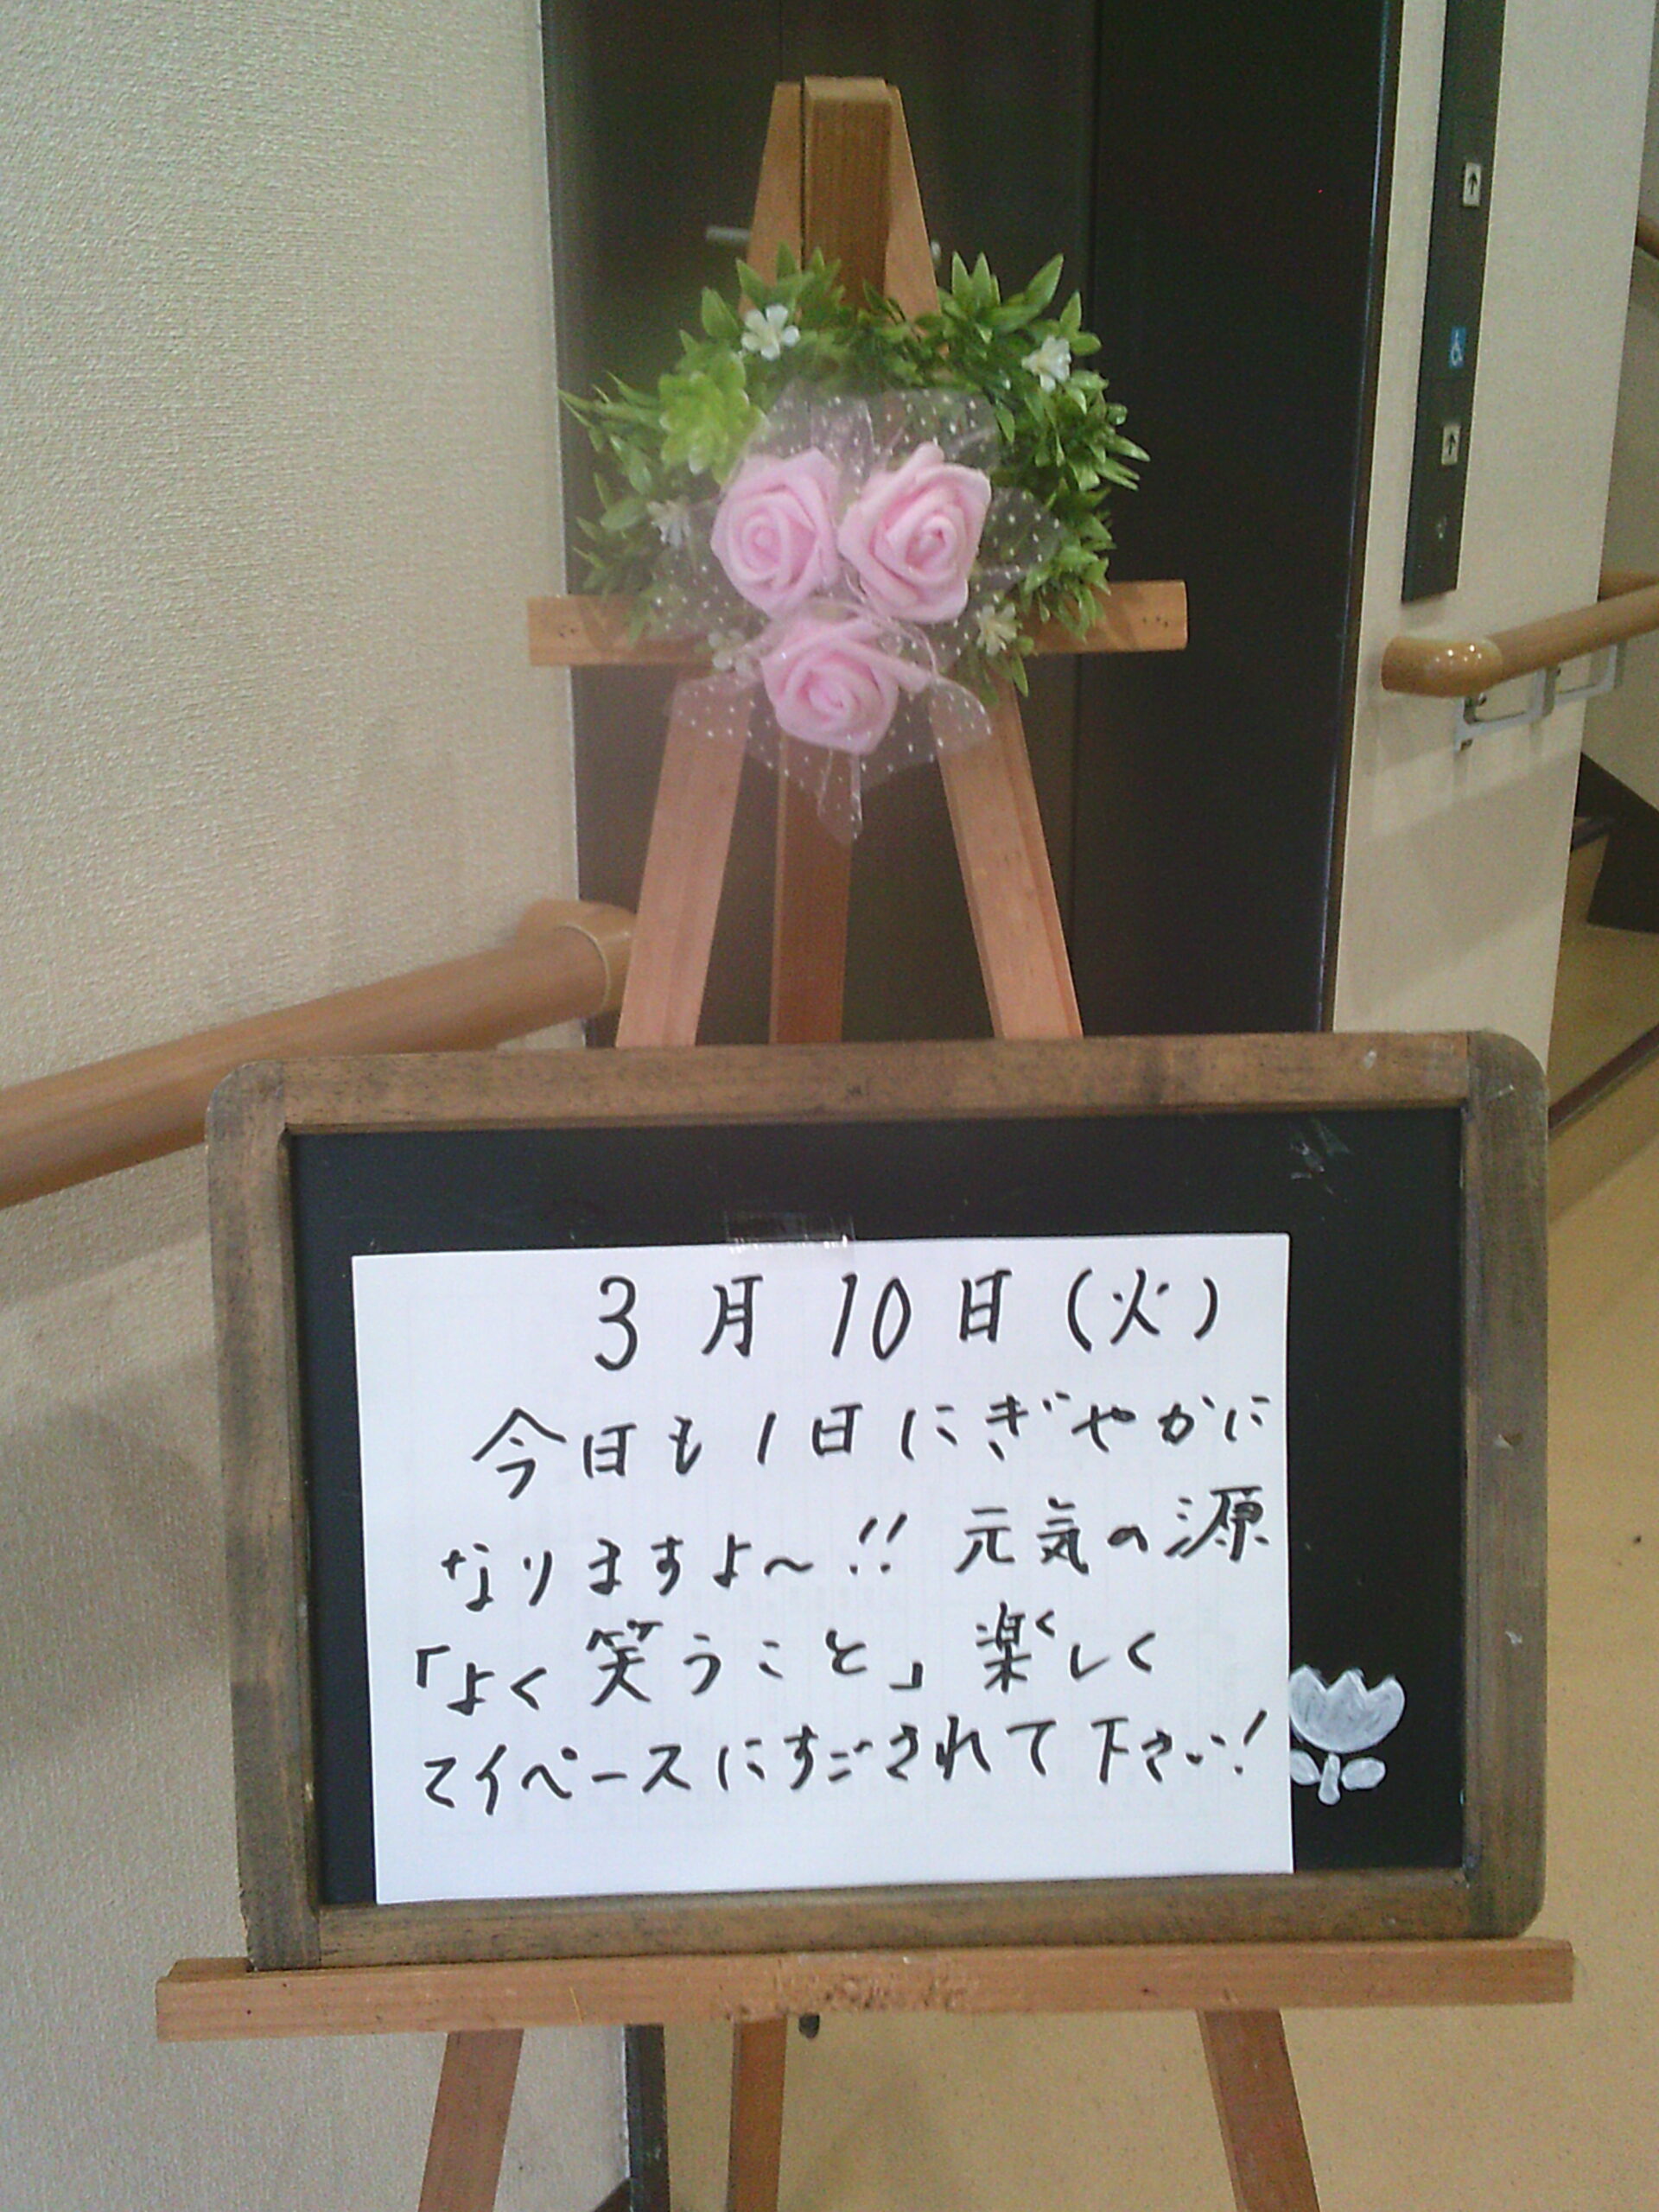 3月10日(火)
今日も1日にぎやかに
なりますよ～!! 元気の源
「よく笑うこと」楽しく
マイペースにすごされて下さい!